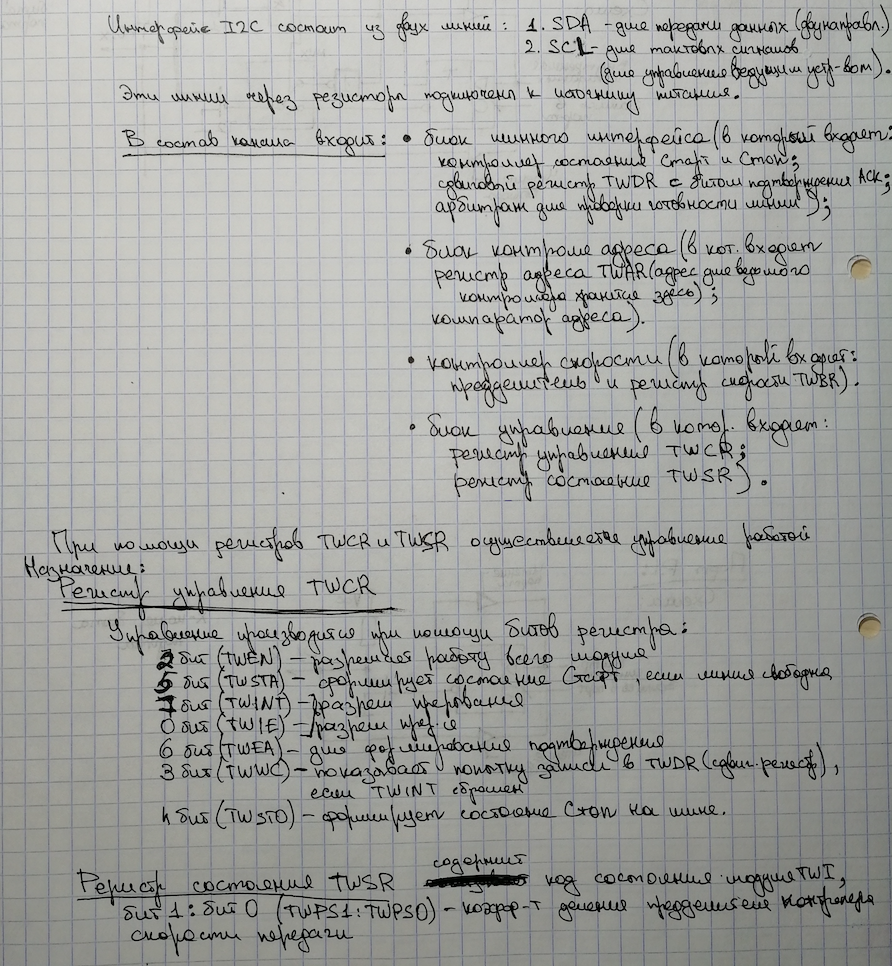 Интерфейс I2C состоит из двух линий: 1. SDA – для передачи данных (двунаправл.)
2. SCL – для тактовых сигналов
(для управления ведущим устр-вом).
Эти линии через резисторы подключены к источнику питания.
В состав канала входит: • блок шинного интерфейса (в который входят:
контроллер состояния Старт и Стоп;
сдвиговый регистр TWDR с битом подтверждения ACK;
арбитраж для проверки готовности линии);
• блок контроля адреса (в кот. входят
регистр адреса TWAR (адрес для ведомого
контроллера хранится здесь);
компаратор адреса).
• контроллер скорости (в который входят:
предделитель и регистр скорости TWBR).
• блок управления (в котор. входят:
регистр управления TWCR;
регистр состояния TWSR).
При помощи регистров TWCR и TWSR осуществляется управление работой
Назначение:
Регистр управления TWCR
Управление производится при помощи битов регистра:
2 бит (TWEN) – разрешает работу всего модуля
5 бит (TWSTA) – формирует состояние Старт, если линия свободна
7 бит (TWINT) – разреш прерывания
0 бит (TWIE) – разреш
6 бит (TWEA) – для формирования подтверждения
3 бит (TWWC) – показывает попытку записи в TWDR (сдвиг. регистр),
если TWINT сброшен
4 бит (TWSTO) – формирует состояние Стоп на шине.
содержит
Регистр состояния TWSR код состояния модуля TWI,
бит 1 : бит 0 (TWPS1:TWPS0) – коэфф-т деления предделителя контроллера
скорости передачи